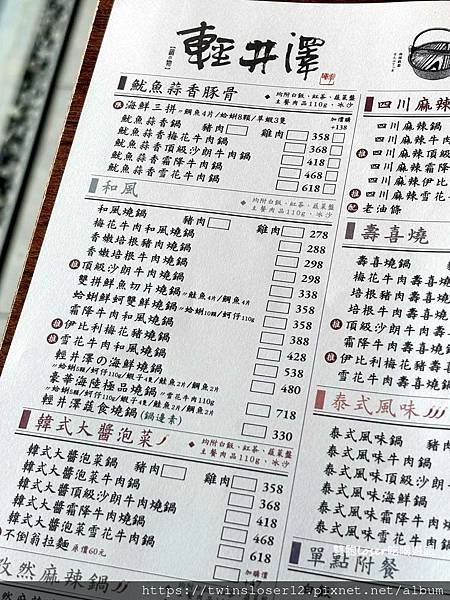 輕井澤
【鍋•物】
魷魚蒜香豚骨 均附白飯、紅茶、蔬菜盤
主餐肉品110g、冰沙
海鮮三拼 〃鯛魚4片/蛤蜊8顆/草蝦3隻 加價購 +138
魷魚蒜香鍋 豬肉 雞肉 358
魷魚蒜香梅花牛肉鍋 368
魷魚蒜香頂級沙朗牛肉鍋 418
魷魚蒜香霜降牛肉鍋 468
魷魚蒜香雪花牛肉鍋 618
和風 均附白飯、紅茶、蔬菜盤
主餐肉品110g、冰沙
和風燒鍋 豬肉 雞肉 278
梅花牛肉和風燒鍋 288
香嫩培根豬肉燒鍋 298
香嫩培根牛肉燒鍋 298
推 頂級沙朗牛肉燒鍋 338
雙拼鮮魚切片燒鍋 〃鮭魚4片/鯛魚4片 358
蛤蜊鮮蚵雙鮮燒鍋 〃蛤蜊10顆/蚵仔110g 308
霜降牛肉和風燒鍋 388
推 伊比利梅花豬燒鍋 428
推 雪花牛肉和風燒鍋 538
輕井澤の海鮮燒鍋 480
〃蛤蜊5顆/蚵仔110g/蝦子4隻/鮭魚2片/鯛魚2片
豪華海陸極品燒鍋 〃雪花牛肉110g 718
〃蛤蜊5顆/蚵仔110g/蝦子4隻/鮭魚2片/鯛魚2片
輕井澤蔬食燒鍋(鍋邊素) 330
韓式大醬泡菜 均附白飯、紅茶、蔬菜盤
主餐肉品110g、冰沙
韓式大醬泡菜鍋 豬肉 雞肉 358
韓式大醬泡菜梅花牛肉鍋 368
韓式大醬頂級沙朗牛肉燒鍋 418
韓式大醬泡菜霜降牛肉鍋 468
韓式大醬泡菜雪花牛肉鍋 618
不倒翁拉麵 原價60元
孜然麻辣鍋 加價購
四川麻辣
四川麻辣鍋
四川麻辣牛肉
推 四川麻辣頂級
四川麻辣霜降
推 四川麻辣伊比
四川麻辣雪花牛
配 老油條
壽喜燒
壽喜燒鍋
梅花牛肉壽喜燒
培根豬肉壽喜燒
培根牛肉壽喜燒
推 頂級沙朗牛壽喜
霜降牛肉壽喜燒
推 伊比利豬壽喜燒鍋
雪花牛肉壽喜燒鍋
泰式風味
泰式風味鍋 豬肉
泰式風味牛肉鍋
泰式風味頂級沙朗牛
泰式風味海鮮鍋
泰式風味霜降牛肉鍋
泰式風味雪花牛肉鍋
單點附餐
https://twinsloser12.pixnet.net/blog